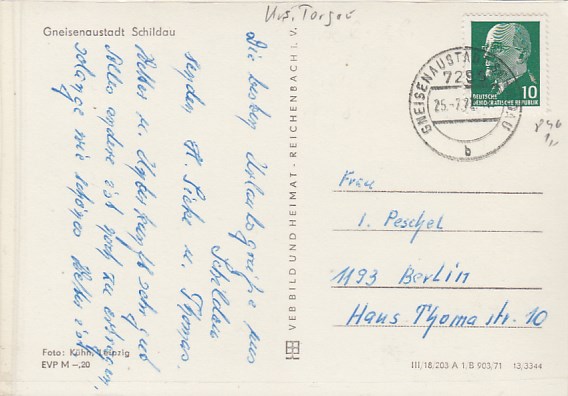 Gneisenaustadt Schildau
Krs. Torgau
Die besten Urlaubsgrüße aus
Schildau
senden H. Lieke u. Thomas.
Wetter u. Unterkunft sehr gut
Alles andere ist noch zu ertragen,
solange wie schönes Wetter ist.
VEB BILD UND HEIMAT · REICHENBACH I. V.
Foto: Kühn, Leipzig
EVP M –,20
GNEISENAUSTADT SCHILDAU
25.-7.72
b
DEUTSCHE
DEMOKRATISCHE REPUBLIK
10
Frau
I. Peschel
1193 Berlin
Hans Thoma str. 10
III/18/203 A 1/B 903/71 13/3344